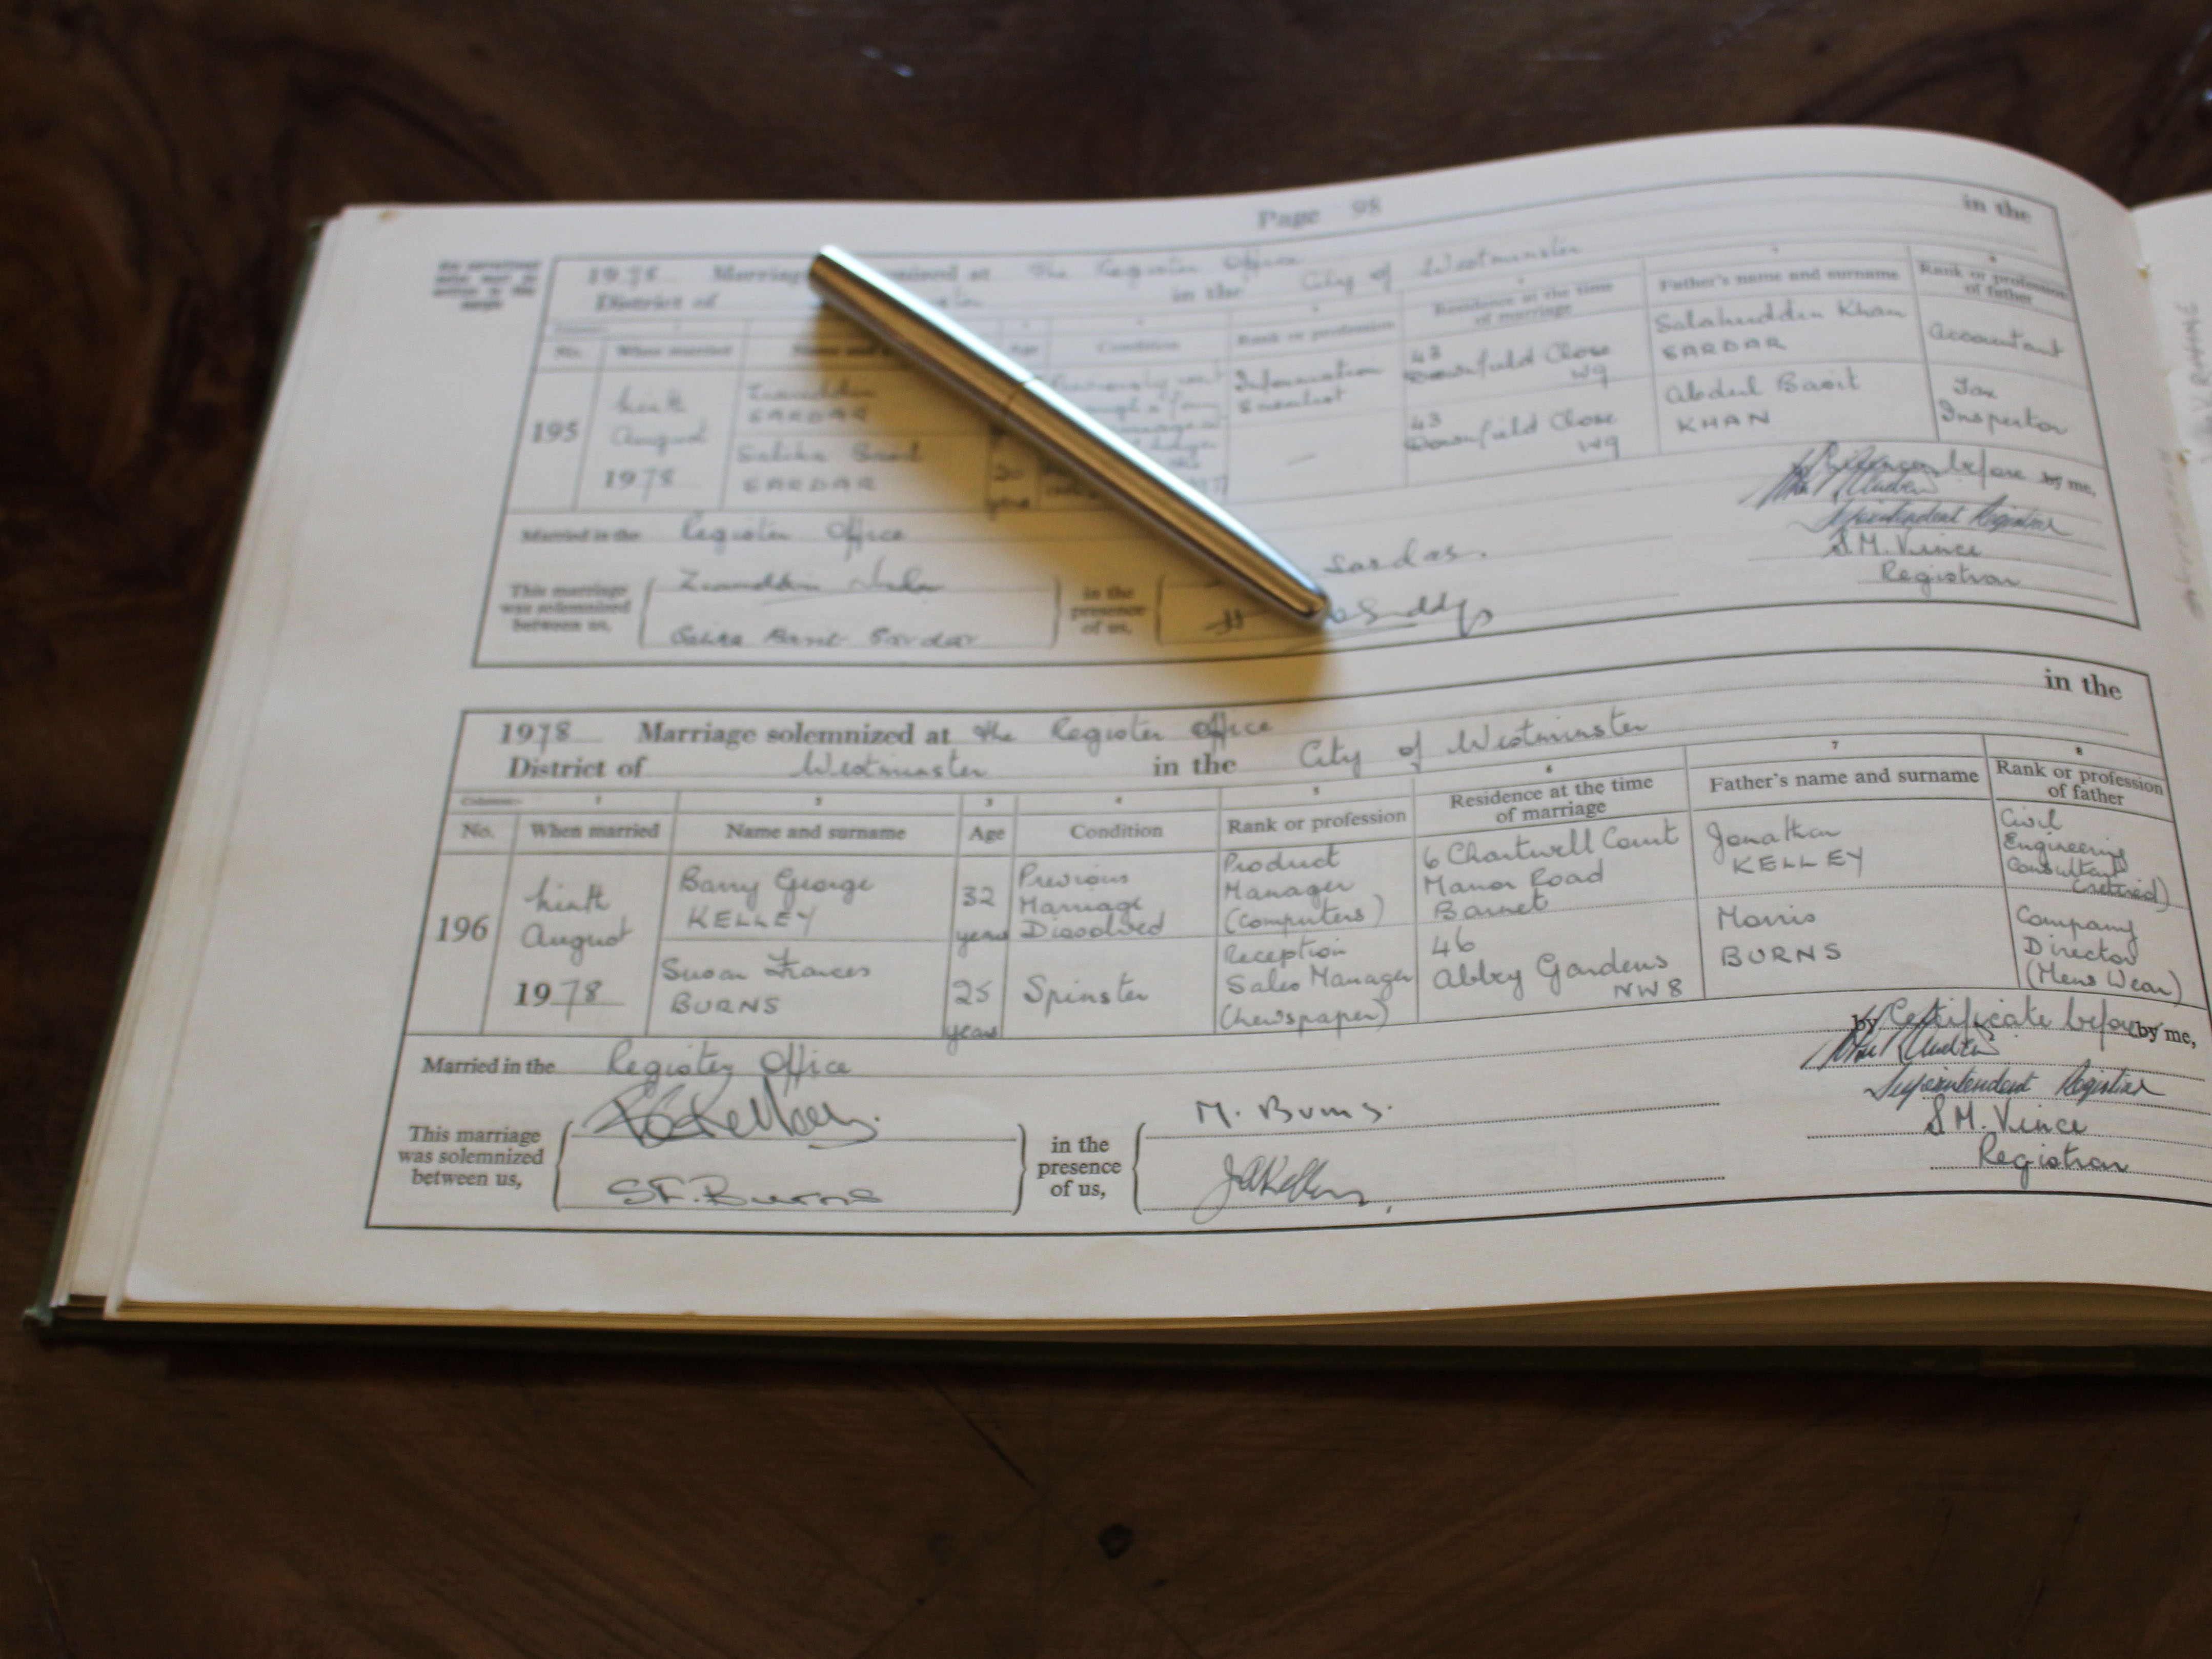 Page 98
in the
1978 Marriage solemnized at the Register Office
District of in the City of Westminster
No. When married Name and Age Condition Rank or profession Residence at the time of marriage Father's name and surname Rank or profession of father
195
Ninth August 1978
Ziauddin SARDAR
Information Scientist
43 Downfield Close W9
Salahuddin Khan SARDAR
Accountant
Saliha Basit SARDAR
20 years
—
43 Downfield Close W9
Abdul Basit KHAN
Tax Inspector
Married in the Register Office
before by me,
This marriage was solemnized between us,
Ziauddin
Saliha Basit Sardar
in the presence of us,
Sardar.
Superintendent Registrar
S M. Vince
Registrar
in the
1978 Marriage solemnized at the Register Office
District of Westminster in the City of Westminster
Columns:- 1 2 3 4 5 6 7 8
No. When married Name and surname Age Condition Rank or profession Residence at the time of marriage Father's name and surname Rank or profession of father
196
Ninth August 1978
Barry George KELLEY
32 years
Previous Marriage Dissolved
Product Manager (Computers)
6 Chartwell Court Manor Road Barnet
Jonathan KELLEY
Civil Engineering Consultant (retired)
Susan Frances BURNS
25 years
Spinster
Reception Sales Manager (Newspaper)
46 Abbey Gardens NW8
Morris BURNS
Company Director (Mens Wear)
Married in the Register Office
by Certificate before by me,
This marriage was solemnized between us,
S.F. Burns
in the presence of us,
M. Burns.
Superintendent Registrar
S M. Vince
Registrar